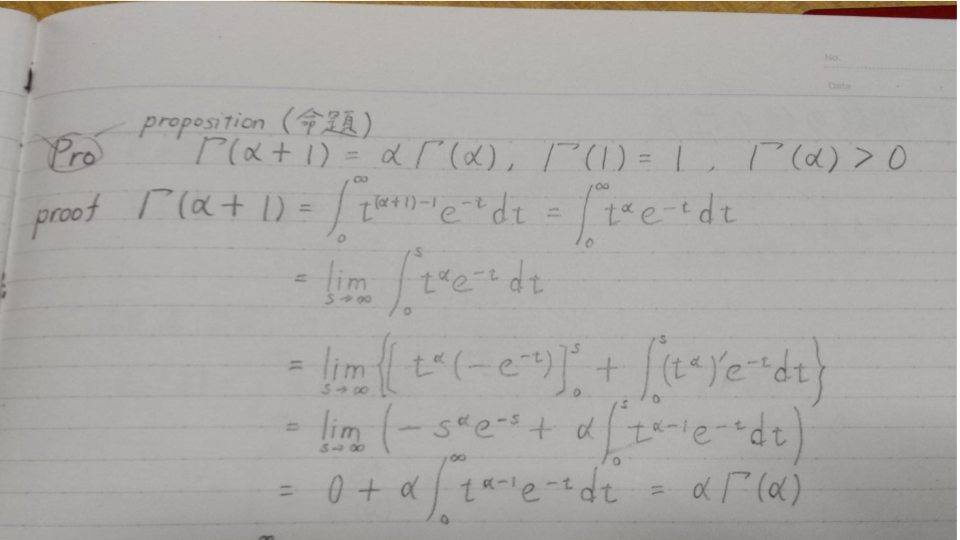 No.
Date
proposition (命題)
Pro Γ(α+1) = αΓ(α), Γ(1) = 1, Γ(α) > 0
proof Γ(α+1) = ∫₀^∞ t^{(α+1)-1} e^{-t} dt = ∫₀^∞ t^α e^{-t} dt
= lim_{s→∞} ∫₀^s t^α e^{-t} dt
= lim_{s→∞} {[t^α(-e^{-t})]₀^s + ∫₀^s (t^α)' e^{-t} dt}
= lim_{s→∞} (-s^α e^{-s} + α∫₀^s t^{α-1} e^{-t} dt)
= 0 + α∫₀^∞ t^{α-1} e^{-t} dt = αΓ(α)